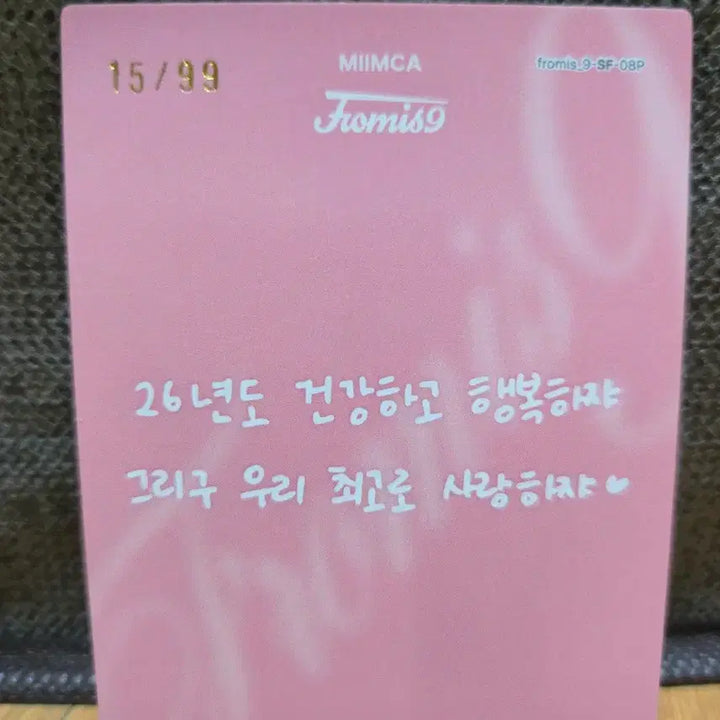 15/99
MIIMCA
fromis_9-SF-08P
fromis9
26년도 건강하고 행복하쟈
그리구 우리 최고로 사랑하쟈♥
fromis9